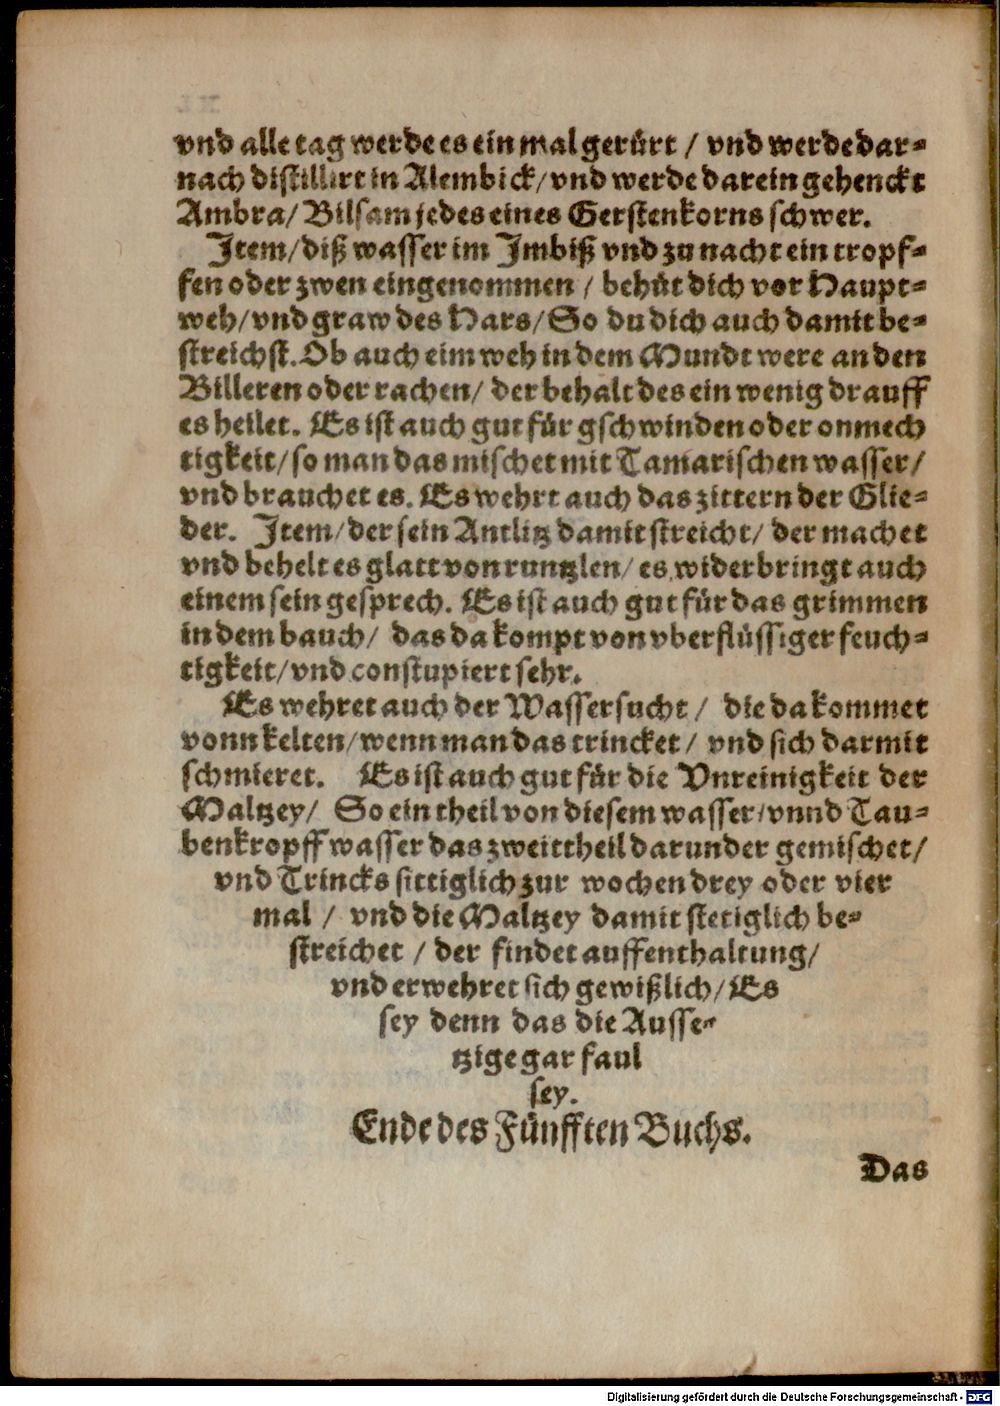 vnd alle tag werde es ein mal gerürt / vnd werde dar-
nach distillirt in Alembick/ vnd werde darein gehenckt
Ambra/ Bilsam jedes eines Gerstenkorns schwer.
Item/ diß wasser im Imbiß vnd zu nacht ein tropf-
fen oder zwen eingenommen / behüt dich vor Haupt-
weh/ vnd graw des Hars/ So du dich auch damit be-
streichst. Ob auch eim weh in dem Mundt were an den
Billeren oder rachen/ der behalt des ein wenig drauff
es heilet. Es ist auch gut für gschwinden oder onmech
tigkeit/ so man das mischet mit Tamarischen wasser/
vnd brauchet es. Es wehrt auch das zittern der Glie-
der. Item/ der sein Antlitz damit streicht/ der machet
vnd behelt es glatt von runtzlen/ es widerbringt auch
einem sein gesprech. Es ist auch gut für das grimmen
in dem bauch/ das da kompt von vberflüssiger feuch-
tigkeit/ vnd constupiert sehr.
Es wehret auch der Wassersucht / die da kommet
vonn kelten/ wenn man das trincket/ vnd sich darmit
schmieret. Es ist auch gut für die Vnreinigkeit der
Maltzey/ So ein theil von diesem wasser/ vnnd Tau-
benkropff wasser das zweittheil darunder gemischet/
vnd Trincks sittiglich zur wochen drey oder vier
mal / vnd die Maltzey damit stetiglich be-
streichet / der findet auffenthaltung/
vnd erwehret sich gewißlich/ Es
sey denn das die Ausse-
tzige gar faul
sey.
Ende des Fünfften Buchs.
Das
Digitalisierung gefördert durch die Deutsche Forschungsgemeinschaft - DFG